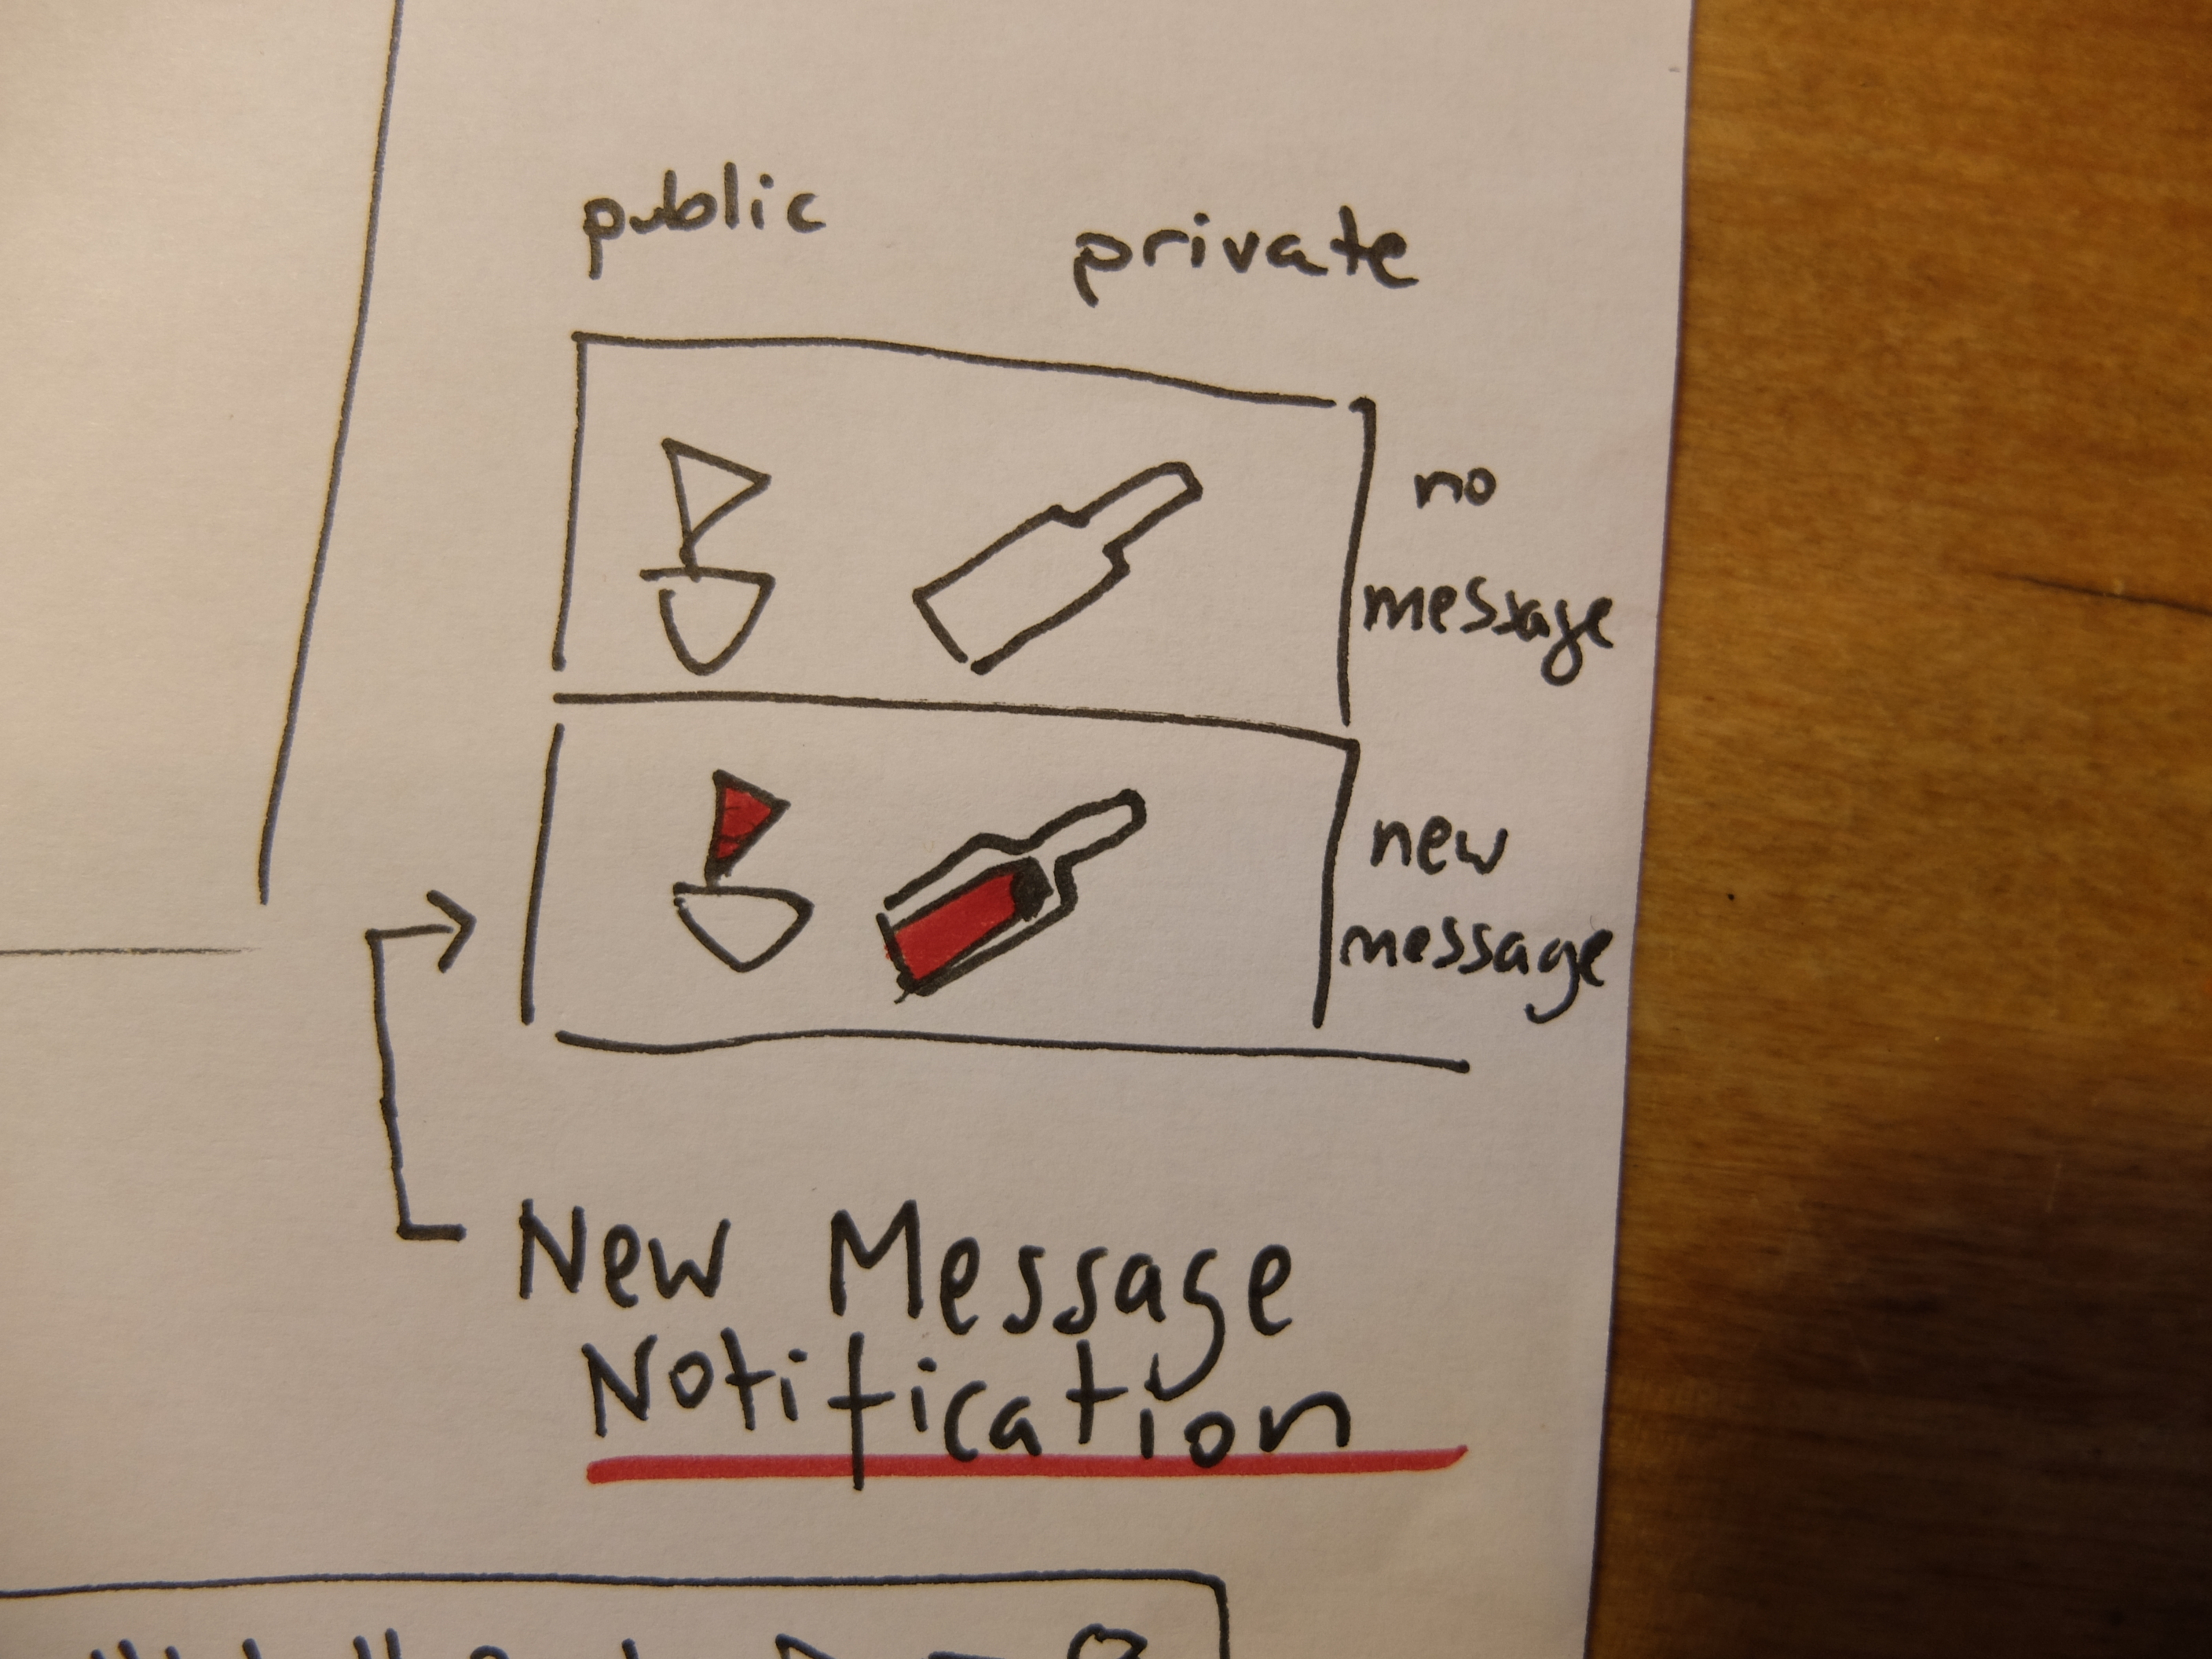 public
private
no
message
new
message
New Message
Notification